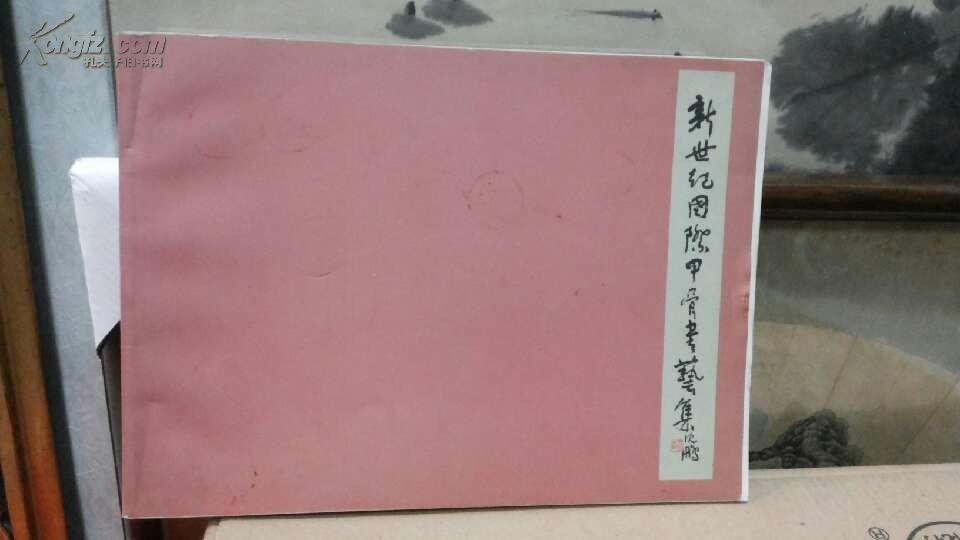 Kongfz.com
孔夫子旧书网
新世纪国際甲骨書藝集
沈鹏